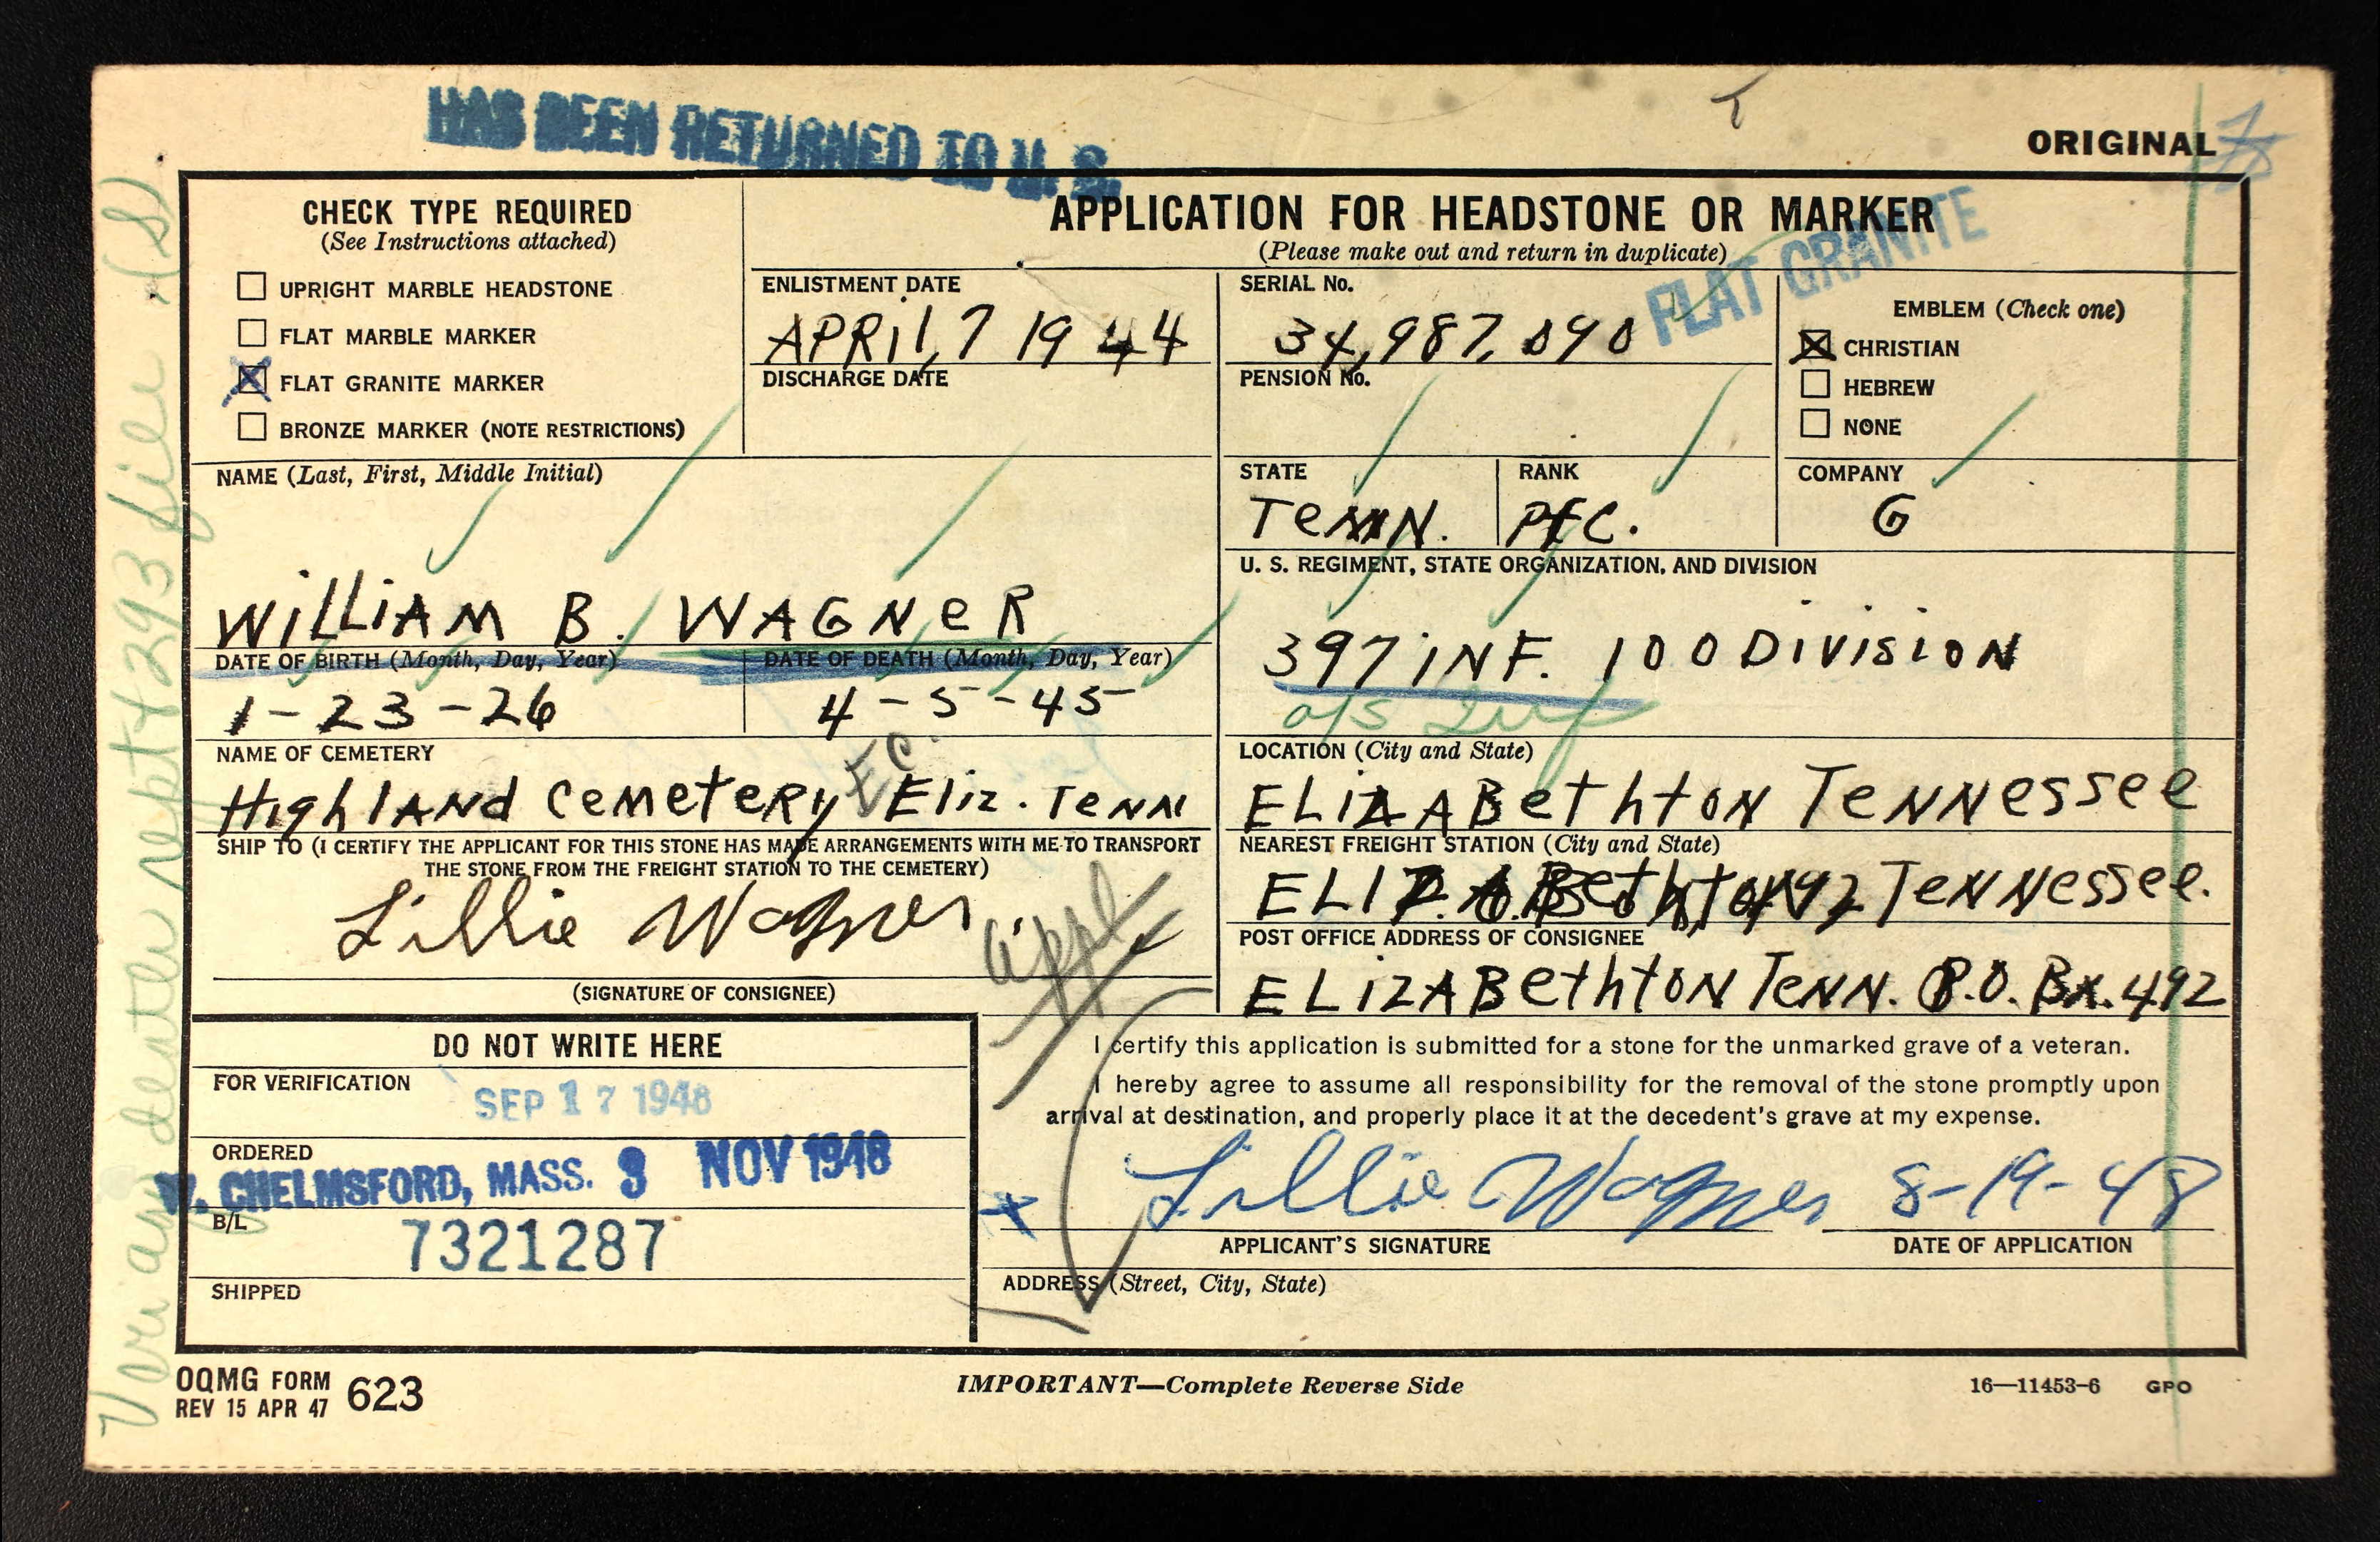 HAS BEEN RETURNED TO U. S.
ORIGINAL
CHECK TYPE REQUIRED
(See Instructions attached)
UPRIGHT MARBLE HEADSTONE
FLAT MARBLE MARKER
FLAT GRANITE MARKER
BRONZE MARKER (NOTE RESTRICTIONS)
APPLICATION FOR HEADSTONE OR MARKER
(Please make out and return in duplicate)
FLAT GRANITE
ENLISTMENT DATE
APRil, 7 1944
DISCHARGE DATE
SERIAL No.
34,987,090
PENSION No.
EMBLEM (Check one)
CHRISTIAN
HEBREW
NONE
NAME (Last, First, Middle Initial)
WiLLiAM B. WAGNeR
STATE
TeNN.
RANK
PFC.
COMPANY
G
U. S. REGIMENT, STATE ORGANIZATION, AND DIVISION
397 iNF. 100 DiVisioN
o/s
DATE OF BIRTH (Month, Day, Year)
1-23-26
DATE OF DEATH (Month, Day, Year)
4-5-45
NAME OF CEMETERY
HighlANd CemeteRy Eliz. TeNN
LOCATION (City and State)
ELiZABethtoN TeNNessee
SHIP TO (I CERTIFY THE APPLICANT FOR THIS STONE HAS MADE ARRANGEMENTS WITH ME TO TRANSPORT
THE STONE FROM THE FREIGHT STATION TO THE CEMETERY)
Lillie Wagner
(SIGNATURE OF CONSIGNEE)
appl
NEAREST FREIGHT STATION (City and State)
ELIZABethtoN TeNNessee.
POST OFFICE ADDRESS OF CONSIGNEE
ELizABethtoN TeNN. P.O. Bx. 492
DO NOT WRITE HERE
FOR VERIFICATION
SEP 17 1948
ORDERED
W. CHELMSFORD, MASS. 3 NOV 1948
B/L
7321287
SHIPPED
I certify this application is submitted for a stone for the unmarked grave of a veteran.
I hereby agree to assume all responsibility for the removal of the stone promptly upon
arrival at destination, and properly place it at the decedent's grave at my expense.
x Lillie Wagner 8-19-48
APPLICANT'S SIGNATURE
DATE OF APPLICATION
ADDRESS (Street, City, State)
OQMG FORM 623
REV 15 APR 47
IMPORTANT—Complete Reverse Side
16—11453-6 GPO
293 file